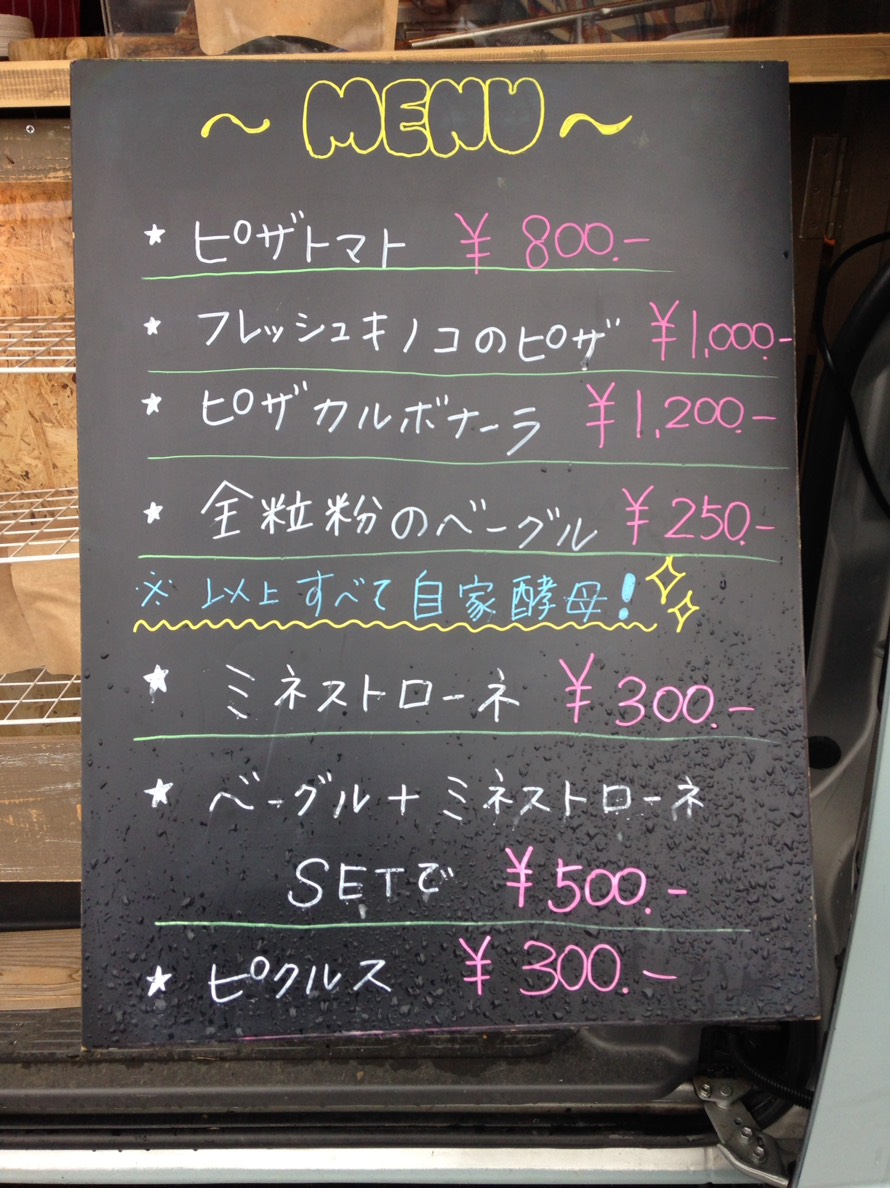 ～ MENU ～
★ ピザトマト ¥800.-
★ フレッシュキノコのピザ ¥1,000.-
★ ピザカルボナーラ ¥1,200.-
★ 全粒粉のベーグル ¥250.-
※ 以上すべて自家酵母！
★ ミネストローネ ¥300.-
★ ベーグル＋ミネストローネ
SETで ¥500.-
★ ピクルス ¥300.-